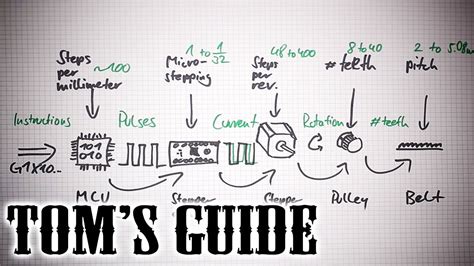 1 to 1/32
48 to 400
8 to 40
2 to 5.08m
Steps
per
millimeter
~100
Micro-
stepping
Steps
per
rev.
#teeth
pitch
Instructions
Pulses
Current
Rotation
#teeth
G1X10...
101
010
MCU
Stepper
Pulley
Belt
TOM'S GUIDE